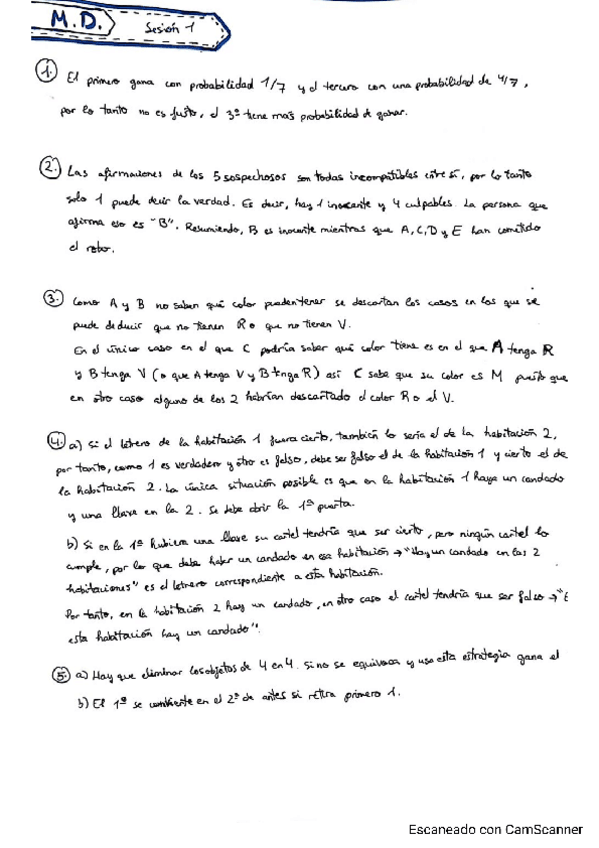 M.D. Sesión 1
1. El primero gana con probabilidad 1/7 y el tercero con una probabilidad de 4/7,
por lo tanto no es justo, el 3º tiene más probabilidad de ganar.
2. Las afirmaciones de los 5 sospechosos son todas incompatibles entre sí, por lo tanto
solo 1 puede decir la verdad. Es decir, hay 1 inocente y 4 culpables. La persona que
afirma eso es "B". Resumiendo, B es inocente mientras que A, C, D y E han cometido
el robo.
3. Como A y B no saben qué color pueden tener se descartan los casos en los que se
puede deducir que no tienen R o que no tienen V.
En el único caso en el que C podría saber qué color tiene es en el que A tenga R
y B tenga V (o que A tenga V y B tenga R) así C sabe que su color es M puesto que
en otro caso alguno de los 2 habrían descartado el color R o el V.
4. a) Si el letrero de la habitación 1 fuera cierto, también lo sería el de la habitación 2,
por tanto, como 1 es verdadero y otro es falso, debe ser falso el de la habitación 1 y cierto el de
la habitación 2. La única situación posible es que en la habitación 1 haya un candado
y una llave en la 2. Se debe abrir la 1ª puerta.
b) Si en la 1ª hubiera una llave su cartel tendría que ser cierto, pero ningún cartel lo
cumple, por lo que debe haber un candado en esa habitación → "Hay un candado en las 2
habitaciones" es el letrero correspondiente a esta habitación.
Por tanto, en la habitación 2 hay un candado, en otro caso el cartel tendría que ser falso → "E
esta habitación hay un candado".
5. a) Hay que eliminar los objetos de 4 en 4. Si no se equivoca y usa esta estrategia gana el
b) El 1º se convierte en el 2º de antes si retira primero 1.
Escaneado con CamScanner